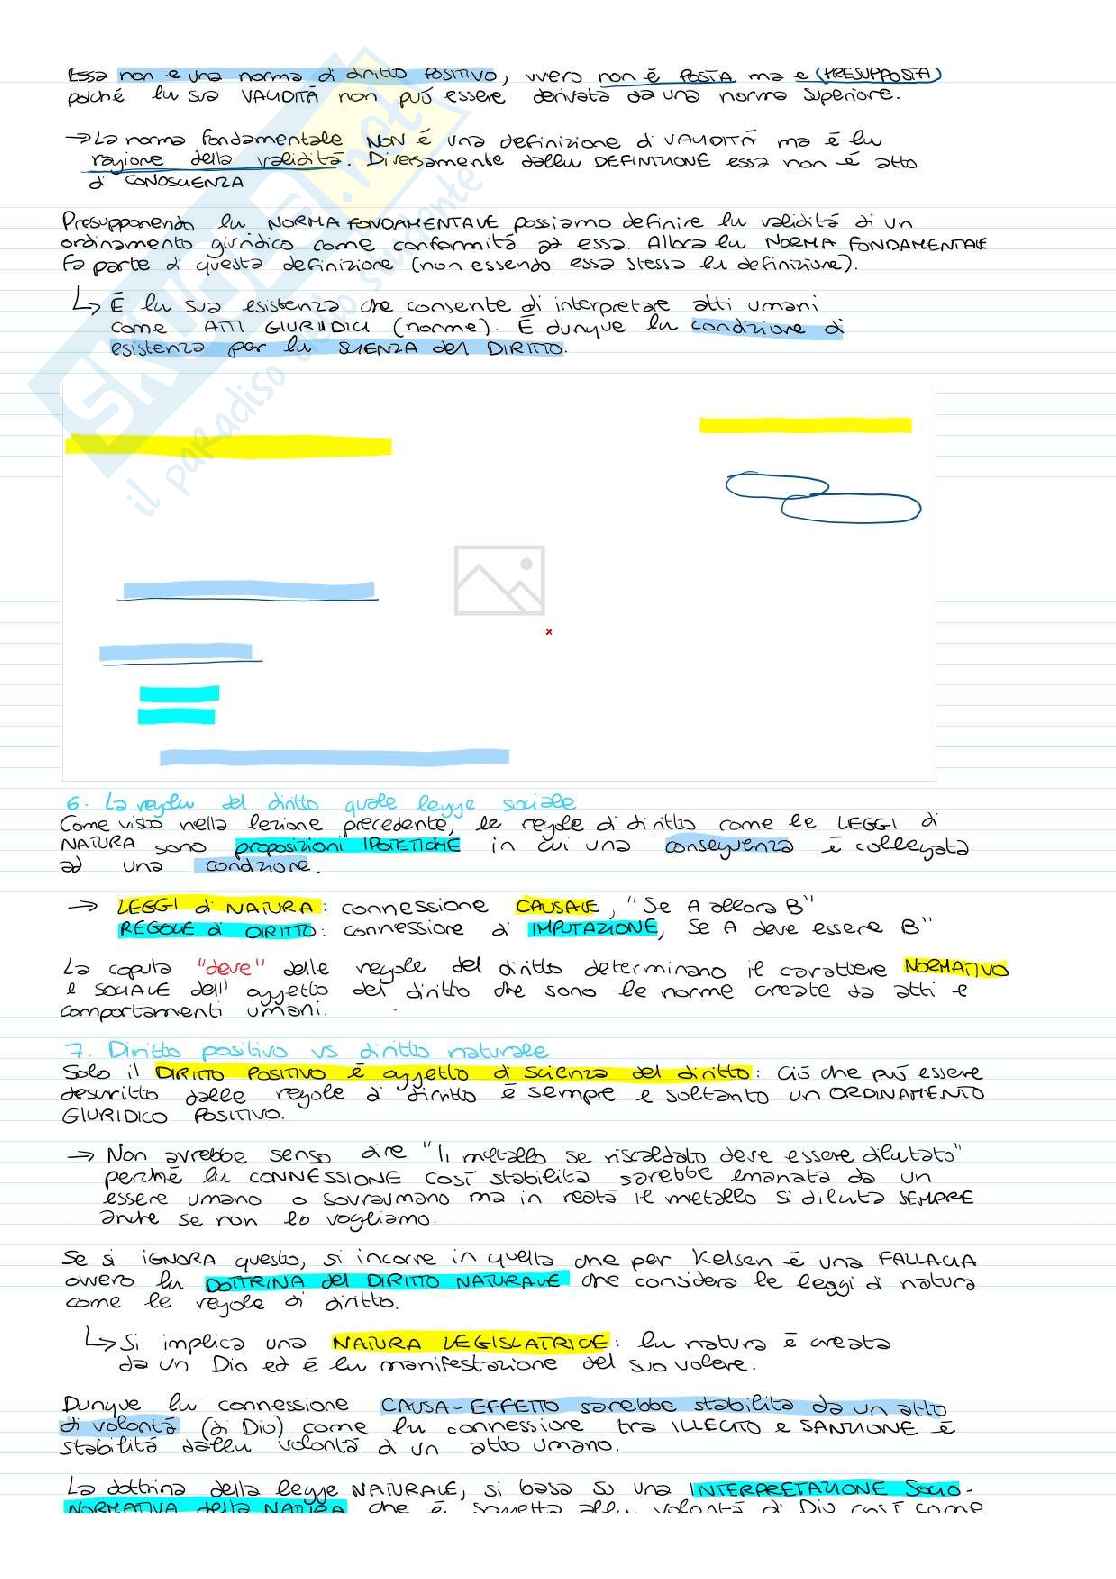 Essa non è una norma di diritto POSITIVO, ovvero non è POSTA ma è (PRESUPPOSTA)
poiché la sua VALIDITÀ non può essere derivata da una norma superiore.
→ La norma fondamentale NON è una definizione di VALIDITÀ ma è la
ragione della validità. Diversamente dalla DEFINIZIONE essa non è atto
di CONOSCENZA
Presupponendo la NORMA FONDAMENTALE possiamo definire la validità di un
ordinamento giuridico come conformità ad essa. Allora la NORMA FONDAMENTALE
fa parte di questa definizione (non essendo essa stessa la definizione).
↳ È la sua esistenza che consente di interpretare atti umani
come ATTI GIURIDICI (norme). È dunque la condizione di
esistenza per la SCIENZA del DIRITTO.
SKUOLA.net
il paradiso dello studente
6. La regola del diritto quale legge sociale
Come visto nella lezione precedente, le regole di diritto come le LEGGI di
NATURA sono proposizioni IPOTETICHE in cui una conseguenza è collegata
ad una condizione.
→ LEGGI di NATURA: connessione CAUSALE, "Se A allora B"
REGOLE di DIRITTO: connessione di IMPUTAZIONE, Se A deve essere B"
La copula "deve" delle regole del diritto determinano il carattere NORMATIVO
e SOCIALE dell' oggetto del diritto che sono le norme create da atti e
comportamenti umani.
7. Diritto positivo vs diritto naturale
Solo il DIRITTO POSITIVO è oggetto di scienza del diritto: Ciò che può essere
descritto dalle regole di diritto è sempre e soltanto un ORDINAMENTO
GIURIDICO POSITIVO.
→ Non avrebbe senso dire "Il metallo se riscaldato deve essere dilatato"
perché la CONNESSIONE così stabilita sarebbe emanata da un
essere umano o sovraumano ma in realtà il metallo si dilata SEMPRE
anche se non lo vogliamo.
Se si IGNORA questo, si incorre in quella che per Kelsen è una FALLACIA
ovvero la DOTTRINA del DIRITTO NATURALE che considera le leggi di natura
come le regole di diritto.
↳ Si implica una NATURA LEGISLATRICE: la natura è creata
da un Dio ed è la manifestazione del suo volere.
Dunque la connessione CAUSA-EFFETTO sarebbe stabilita da un atto
di volontà (di Dio) come la connessione tra ILLECITO e SANZIONE è
stabilità dalla volontà di un atto umano.
La dottrina della legge NATURALE, si basa su una INTERPRETAZIONE SOCIO-
NORMATIVA della NATURA che è soggetta alla volontà di Dio così come